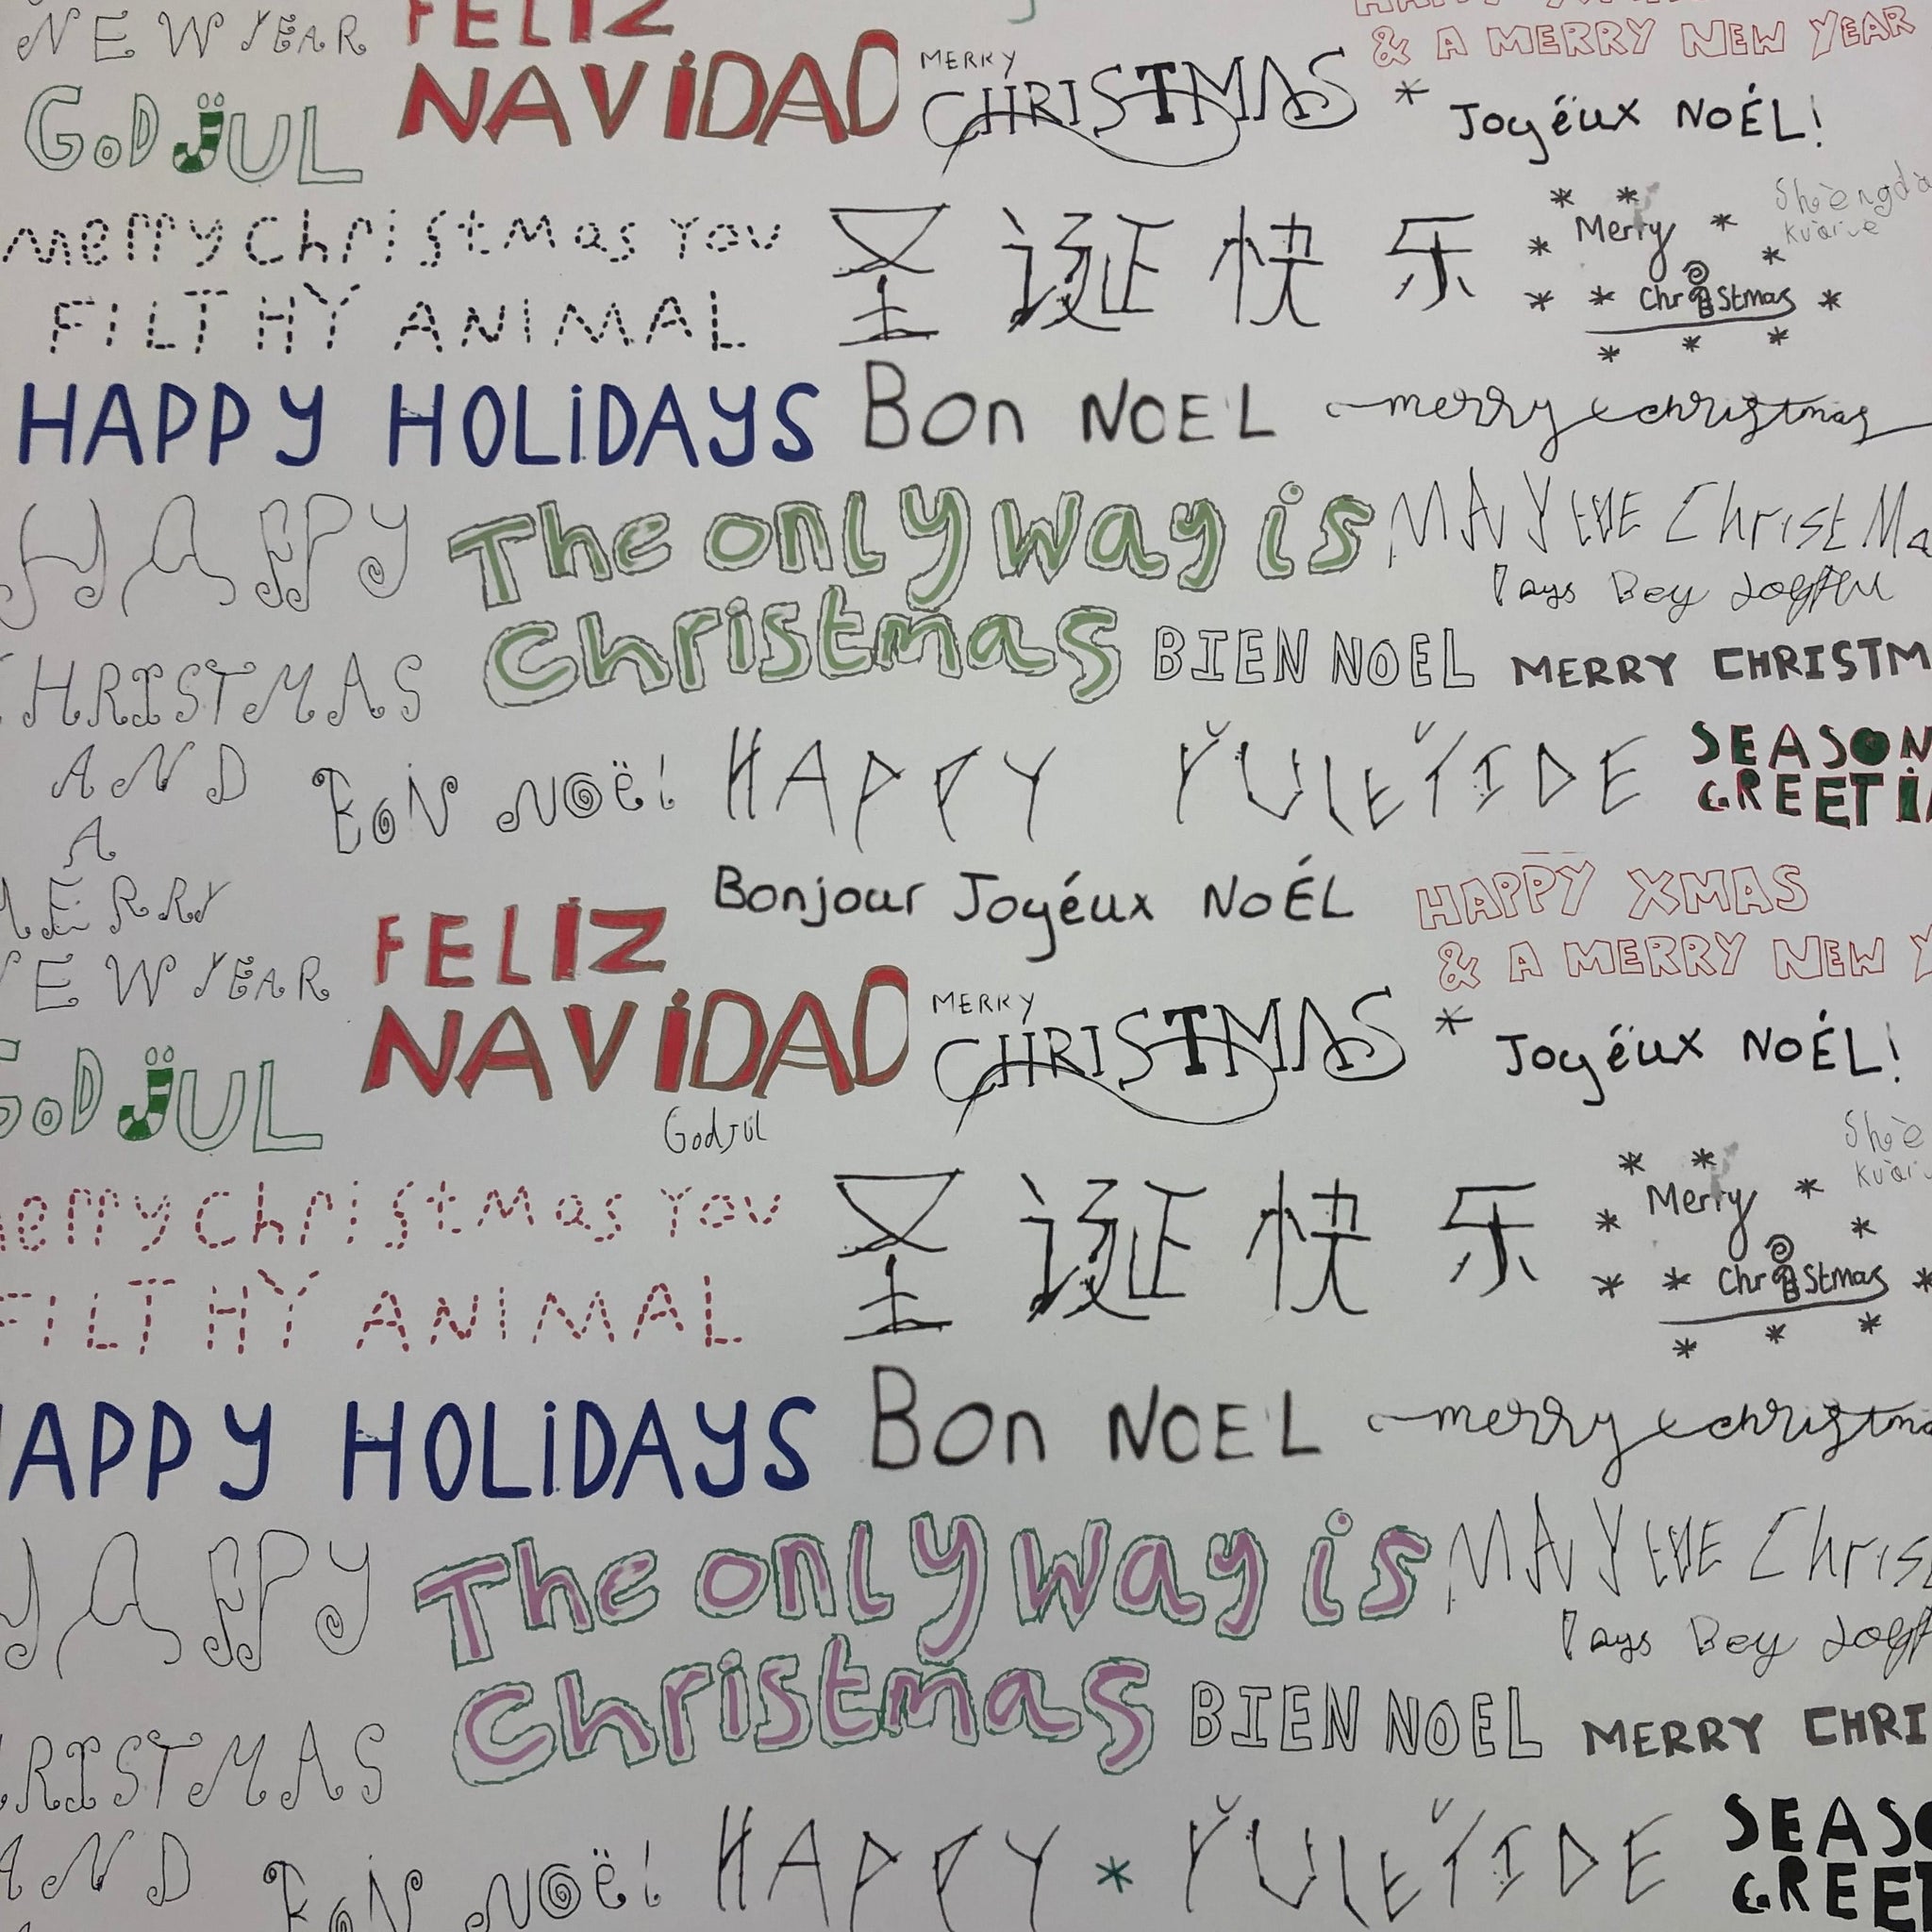 NEW YEAR
FELIZ
NAVIDAD
MERRY
CHRISTMAS
& A MERRY NEW YEAR
GOD JUL
* Joyéux NOÉL!
merry christmas you
FILTHY ANIMAL
圣诞快乐
Merry
Christmas
HAPPY HOLIDAYS
Bon NOEL
merry christmas
HAPPY
CHRISTMAS
AND
A
MERRY
NEW YEAR
The only way is
christmas
MAY THE Christma
Days Bey Joyful
BIEN NOEL
MERRY CHRISTM
BON NOËL!
HAPPY YULETIDE
SEASON
GREETI
Bonjour Joyéux NOÉL
HAPPY XMAS
& A MERRY NEW Y
FELIZ
NAVIDAD
MERRY
CHRISTMAS
* Joyéux NOÉL!
GOD JUL
Godjul
merry christmas you
FILTHY ANIMAL
圣诞快乐
Merry
Christmas
HAPPY HOLIDAYS
Bon NOEL
merry christma
HAPPY
CHRISTMAS
AND
The only way is
christmas
MAY THE Christ
Days Bey
BIEN NOEL
MERRY CHRI
BON NOËL!
HAPPY * YULETIDE
SEASO
GREET